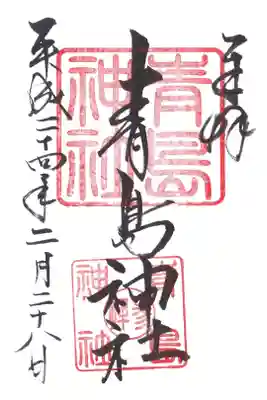 奉拝
青島神社
平成二十四年二月二十八日
青島
神社
青島
神社